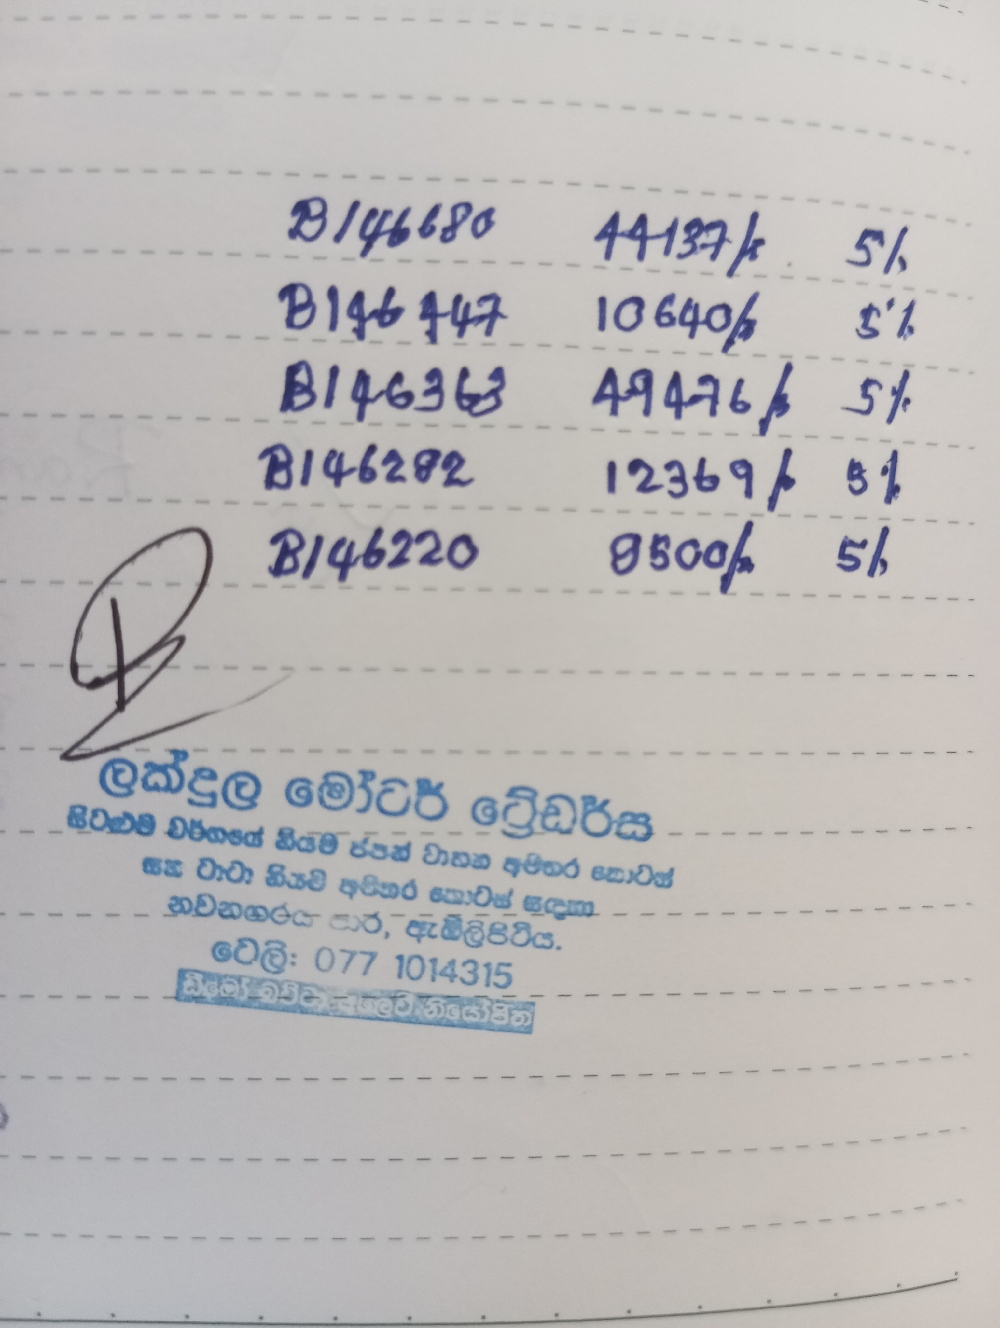 B146680 44137/= 5%
B146447 10640/= 5%
B146363 49476/= 5%
B146282 12369/= 5%
B146220 8500/= 5%
ලක්දුල මෝටර් ට්‍රේඩර්ස
සියළුම වර්ගයේ සියම ජපන් වාහන අමතර කොටස්
සහ ටාටා සියම අමතර කොටස් සඳහා
නවනගරය පාර, ඇඹිලිපිටිය.
ටෙලි: 077 1014315
නියෝජිත